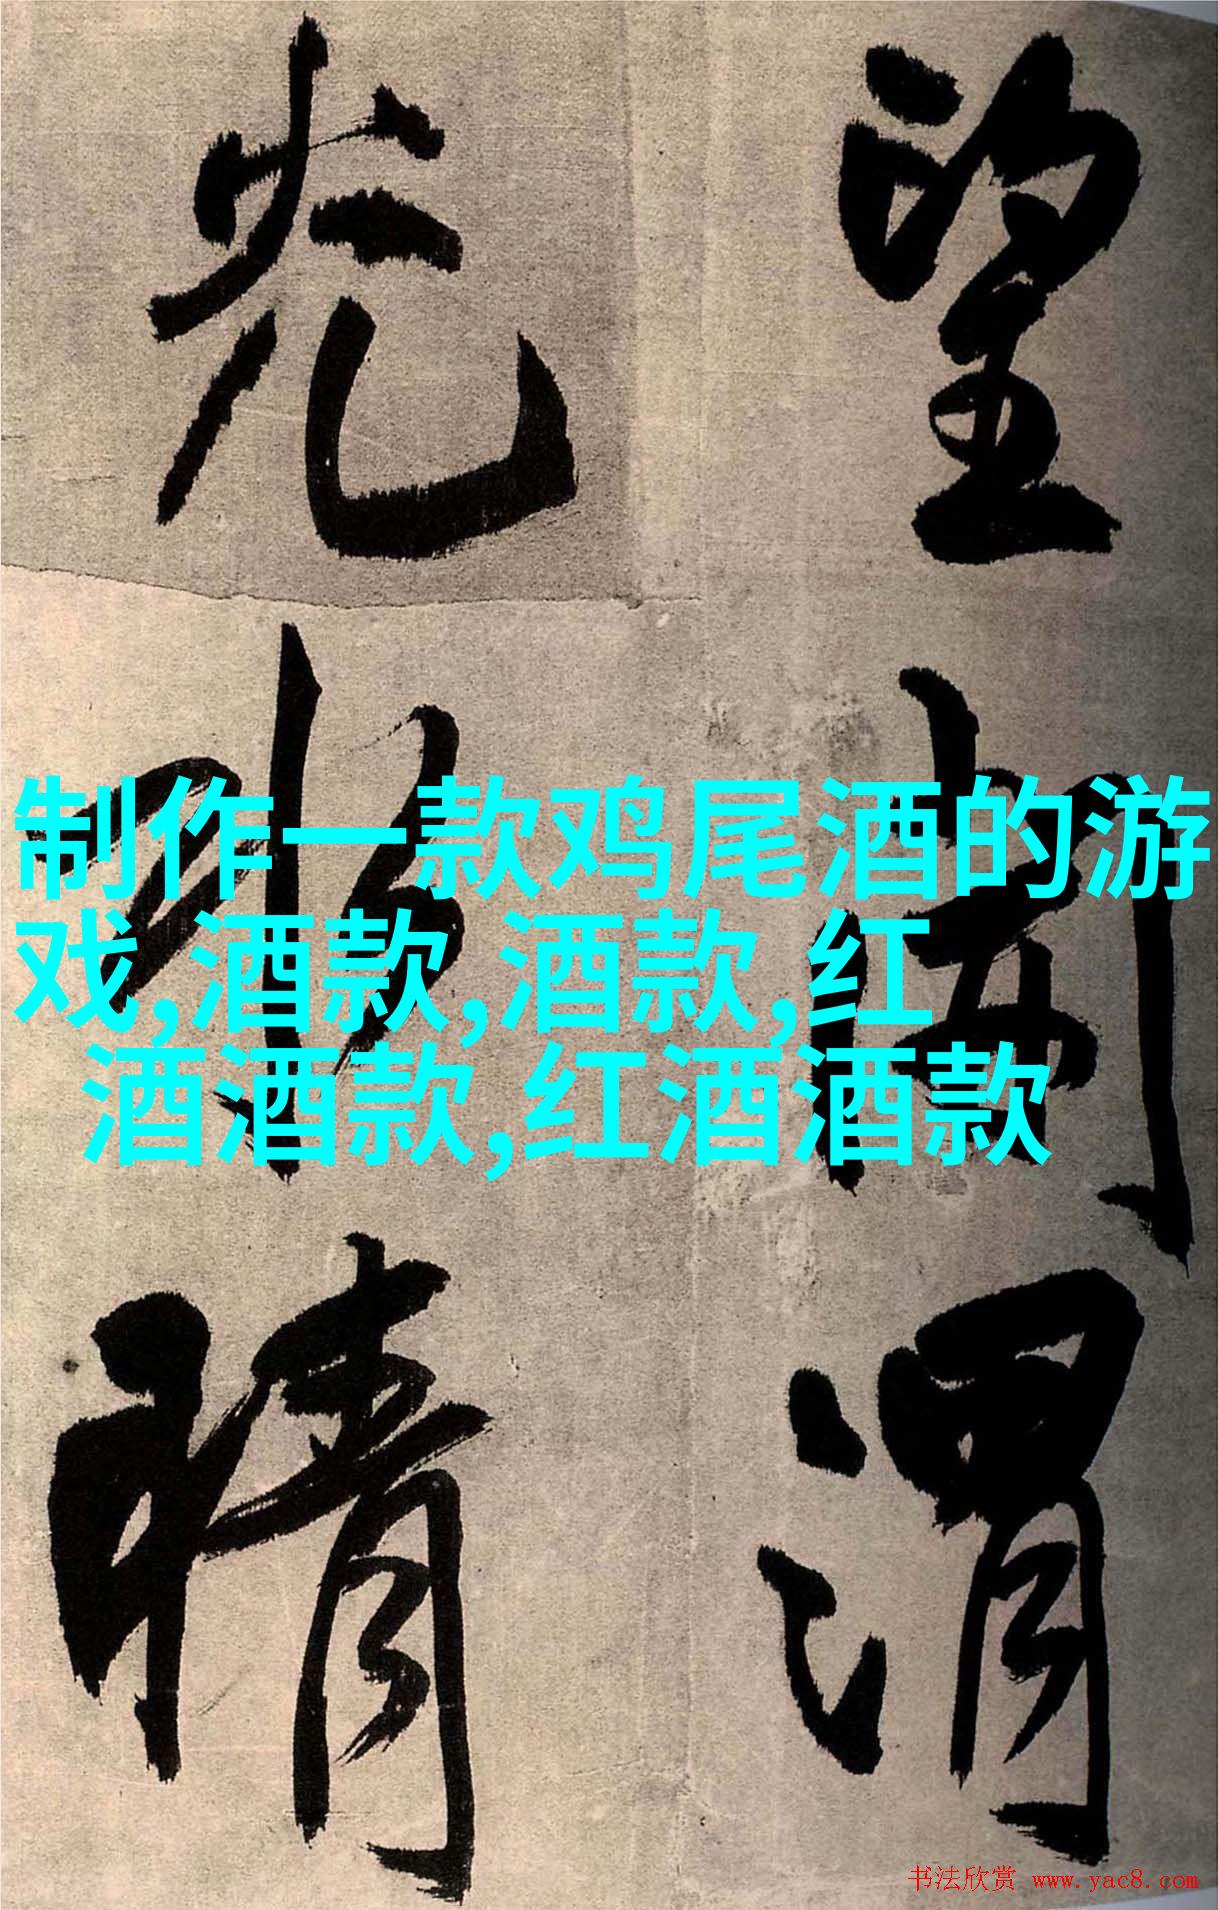 望 渭
光 晴
制作一款鸡尾酒的游
戏,酒款,酒款,红
酒酒款,红酒酒款
书法欣赏 www.yac8.com